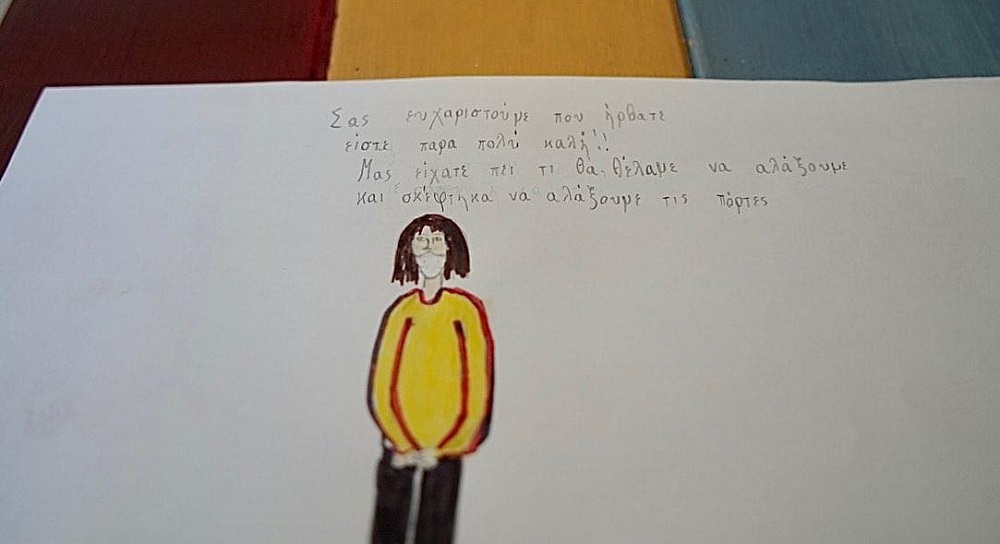 Σας ευχαριστούμε που ήρθατε
είστε παρα πολύ καλή!!
Μας είχατε πει τι θα θέλαμε να αλάξουμε
και σκέφτηκα να αλάξουμε τις πόρτες